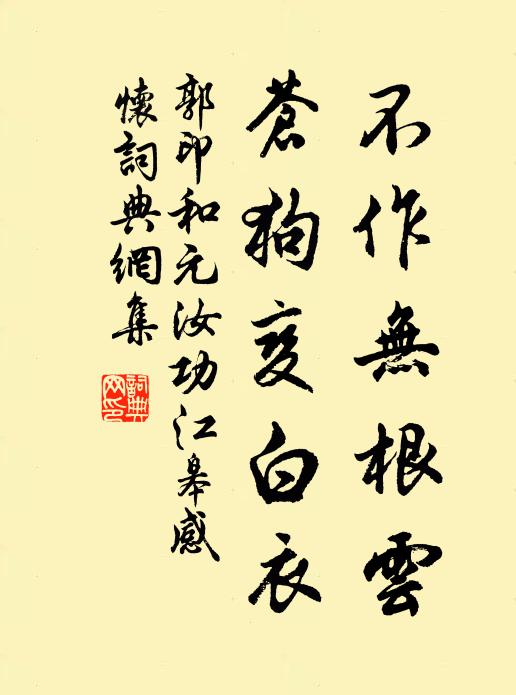 不作無根雲
蒼狗变白衣
郭印和元汝功江皋感
懷詞典網集
詞典
网印